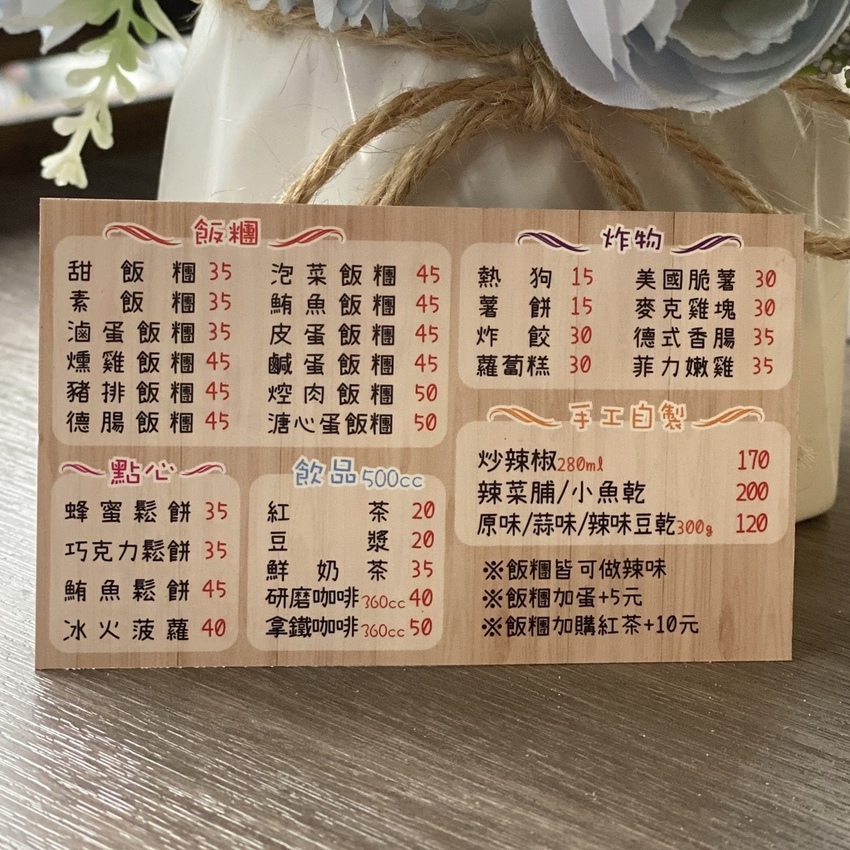 飯糰
甜飯糰 35
素飯糰 35
滷蛋飯糰 35
燻雞飯糰 45
豬排飯糰 45
德腸飯糰 45
泡菜飯糰 45
鮪魚飯糰 45
皮蛋飯糰 45
鹹蛋飯糰 45
焢肉飯糰 50
溏心蛋飯糰 50
炸物
熱狗 15
薯餅 15
炸餃 30
蘿蔔糕 30
美國脆薯 30
麥克雞塊 30
德式香腸 35
菲力嫩雞 35
點心
蜂蜜鬆餅 35
巧克力鬆餅 35
鮪魚鬆餅 45
冰火菠蘿 40
飲品500cc
紅茶 20
豆漿 20
鮮奶茶 35
研磨咖啡360cc 40
拿鐵咖啡360cc 50
手工自製
炒辣椒280ml 170
辣菜脯/小魚乾 200
原味/蒜味/辣味豆乾300g 120
※飯糰皆可做辣味
※飯糰加蛋+5元
※飯糰加購紅茶+10元